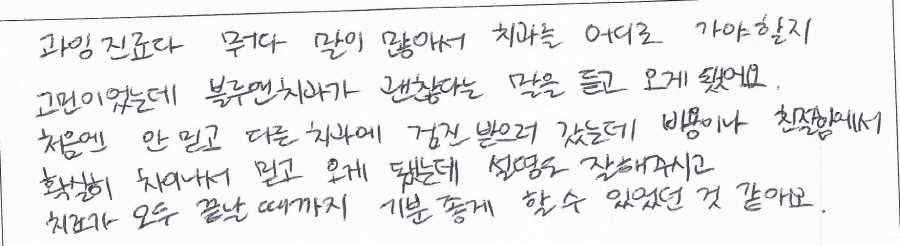 과잉진료다 뭐다 말이 많아서 치과를 어디로 가야할지
고민이었는데 블루맨치과가 괜찮다는 말을 듣고 오게 됐어요.
처음엔 안 믿고 다른 치과에 검진 받으러 갔는데 비용이나 친절함에서
확실히 차이나서 믿고 오게 됐는데 설명도 잘해주시고
치료가 모두 끝날 때까지 기분 좋게 할 수 있었던 것 같아요.